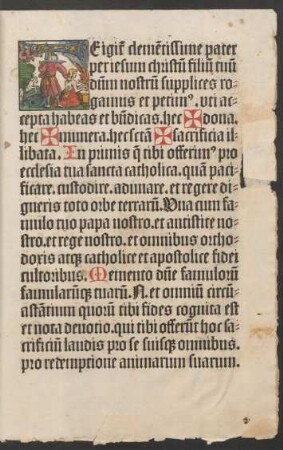 E igit᷑ clementissime pater
per iesum christum filiū tuū
dn̄m nostrū supplices ro⸗
gamus et petimꝰ. vti ac⸗
cepta habeas et bn̄dicas. hec ✠ dona.
hec ✠ munera. hec sctā ✠ sacrificia il⸗
libata. In primis q̄ tibi offerimꝰ pro
ecclesia tua sancta catholica. quā paci⸗
ficare. custodire. adunare. et regere di⸗
gneris toto orbe terrarū. Vna cum fa⸗
mulo tuo papa nostro. et antistite no⸗
stro. et rege nostro. et omnibus ortho⸗
doxis atqꝫ catholice et apostolice fidei
cultoribus. Memento dn̄e famulorū
famularūqꝫ tuarū. N. et omniū circū⸗
astātium quorū tibi fides cognita est
et nota deuotio. qui tibi offerūt hoc sa⸗
crificiū laudis pro se suisqꝫ omnibus.
pro redemptione animarum suarum.